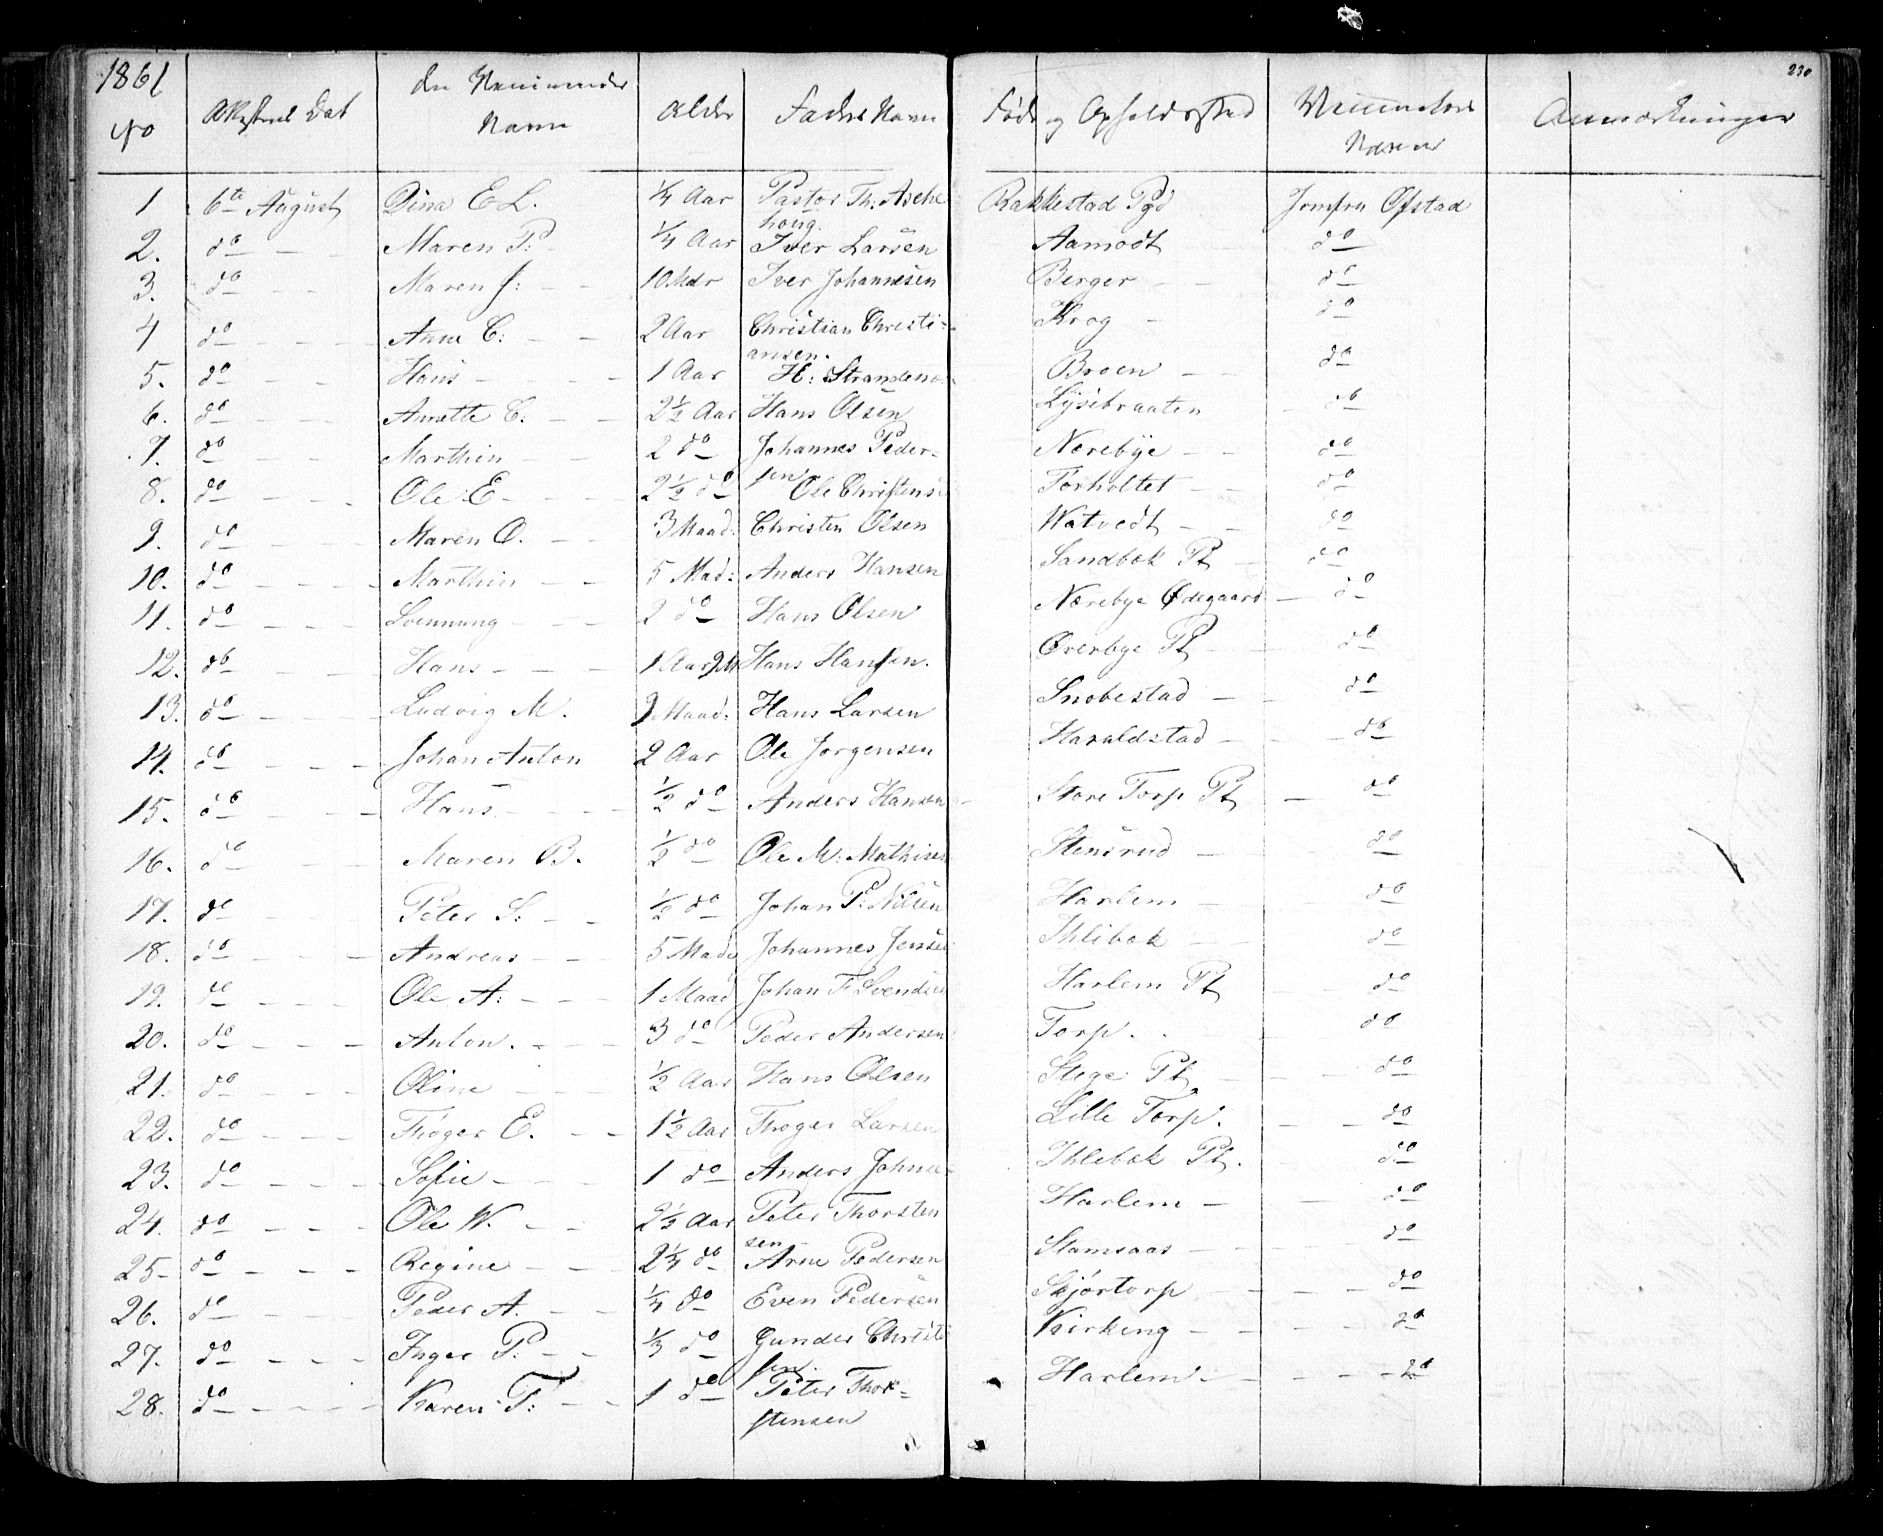 1861 230
No Attestens Dat den Vaccinerdes Navn Alder Faders Navn Føde og Opholdssted Vaccinateurs Navn Anmærkninger
1 6te August Dina E L. ¼ Aar Pastor Th: Aschehoug. Rakkestad Pgd Jomfru Ofstad
2. do Maren P: ¼ Aar Iver Larsen Aamodt do
3. do Maren J: 10 Mdr Iver Johannesen Berger do
4 do Anne C: 2 Aar Christian Christiansen. Krog do
5. do Hans 1 Aar H: Strandena Broen do
6. do Anette C. 2½ Aar Hans Olsen Lysebraaten do
7. do Marthin 2 do Johannes Pedersen Nærebye do
8. do Ole E 2½ do Ole Christens Forholtet do
9. do Maren O. 3 Maad: Christen Olsen Watvedt do
10. do Marthin 5 Mad: Anders Hansen Sandbæk Pl do
11. do Svennung 2 do Hans Olsen Nærebye Ødegaard do
12. do Hans 1 Aar 9 M Hans Hansen. Øverbye Pl do
13. do Ludvig M. 9 Maad: Hans Larsen Snobestad do
14. do Johan Anton 2 Aar Ole Jørgensen Haraldstad do
15. do Hans ½ do Anders Hansen Store Torp Pl do
16. do Maren B. ½ do Ole M: Mathisen Stensrud do
17. do Peter S: ½ do Johan P: Nilsen Harlem do
18. do Andreas 5 Made Johannes Jensen Ihlebæk do
19. do Ole A: 1 Maad Johan F: Svendsen Harlem Pl do
20. do Anton. 3 do Peder Andersen Torp. do
21. do Oline ½ Aar Hans Olsen Stege Pl do
22. do Thøger E. 1½ Aar Thøger Larsen Lille Torp. do
23. do Sofie 1 do Anders Johna Ihlebæk Pl. do
24. do Ole W. 2½ Aar Peter Thorstensen Harlem do
25 do Regine 2¼ do Arne Pedersen Stamsaas do
26. do Peder A. ¼ do Even Pedersen Skjørtorp do
27. do Inger P. ⅓ do Gunder Christisen. Kirkeng do
28. do Karen F: 1 do Peter Thorstensen Harlem do